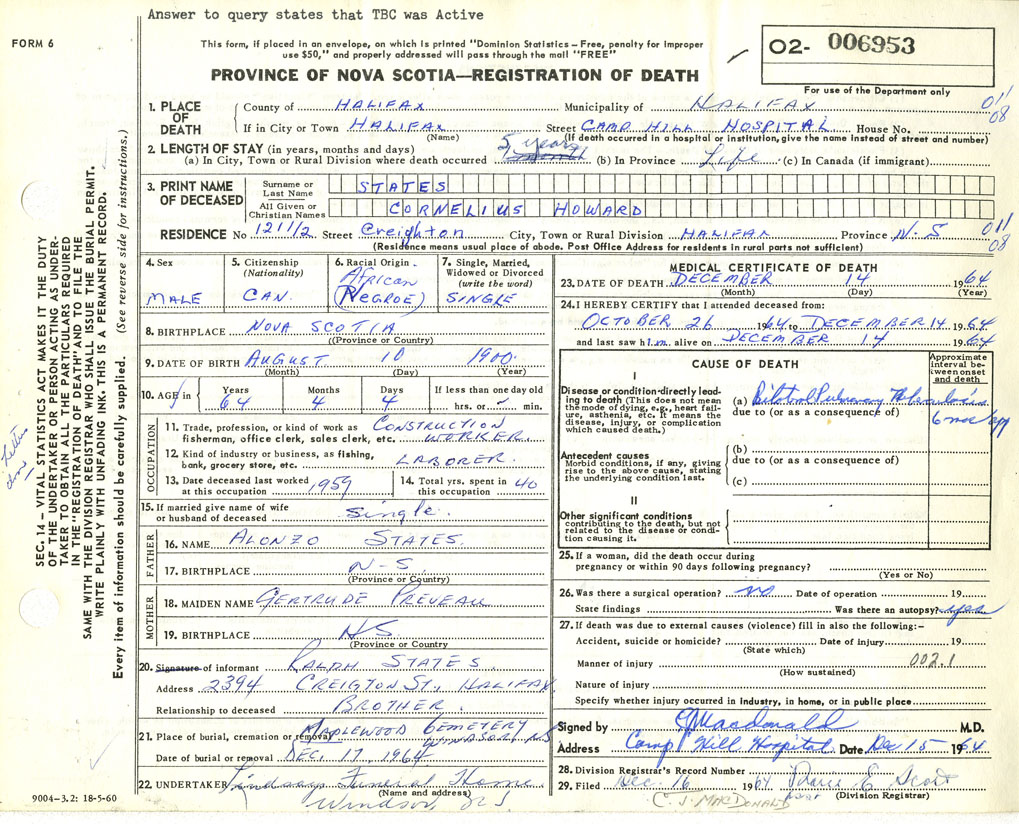 Answer to query states that TBC was Active
FORM 6
This form, if placed in an envelope, on which is printed "Dominion Statistics – Free, penalty for improper
use $50," and properly addressed will pass through the mail "FREE"
PROVINCE OF NOVA SCOTIA—REGISTRATION OF DEATH
02- 006953
For use of the Department only
1. PLACE OF DEATH
County of HALIFAX Municipality of HALIFAX 011
If in City or Town HALIFAX Street CAMP HILL HOSPITAL House No. 08
(Name) (If death occurred in a hospital or institution, give the name instead of street and number)
2. LENGTH OF STAY (in years, months and days)
(a) In City, Town or Rural Division where death occurred 5 years (b) In Province Life (c) In Canada (if immigrant)
3. PRINT NAME OF DECEASED
Surname or Last Name STATES
All Given or Christian Names CORNELIUS HOWARD
RESIDENCE No 1211/2 Street Creighton City, Town or Rural Division HALIFAX Province N.S 011
08
(Residence means usual place of abode. Post Office Address for residents in rural parts not sufficient)
4. Sex MALE
5. Citizenship (Nationality) CAN.
6. Racial Origin African (NEGROE)
7. Single, Married, Widowed or Divorced (write the word) SINGLE
8. BIRTHPLACE NOVA SCOTIA
(Province or Country)
9. DATE OF BIRTH AUGUST 10 1900.
(Month) (Day) (Year)
10. AGE in Years 64 Months 4 Days 4 If less than one day old
hrs. or min.
OCCUPATION
11. Trade, profession, or kind of work as CONSTRUCTION
fisherman, office clerk, sales clerk, etc. WORKER.
12. Kind of industry or business, as fishing,
bank, grocery store, etc. LABORER.
13. Date deceased last worked at this occupation 1959
14. Total yrs. spent in this occupation 40
15. If married give name of wife
or husband of deceased Single.
FATHER
16. NAME ALONZO STATES.
17. BIRTHPLACE N-S.
(Province or Country)
MOTHER
18. MAIDEN NAME GERTRUDE PREVEAU
19. BIRTHPLACE NS
(Province or Country)
20. Signature of informant RALPH STATES
Address 2394 CREIGTON ST., HALIFAX
Relationship to deceased BROTHER.
21. Place of burial, cremation or removal MAPLEWOOD CEMETERY
WINDSOR, N.S
Date of burial or removal DEC. 17, 1964
22. UNDERTAKER Lindsay Funeral Home
(Name and address)
Windsor N S
9004–3.2: 18-5-60
MEDICAL CERTIFICATE OF DEATH
23. DATE OF DEATH DECEMBER 14 1964
(Month) (Day) (Year)
24. I HEREBY CERTIFY that I attended deceased from:
OCTOBER 26 1964 to DECEMBER 14 1964
and last saw him alive on DECEMBER 14 1964
CAUSE OF DEATH
Approximate interval between onset and death
I
Disease or condition directly leading to death (This does not mean the mode of dying, e.g., heart failure, asthenia, etc. It means the disease, injury, or complication which caused death.)
(a) Bilateral Pulmonary Tuberculosis
due to (or as a consequence of) 6 mos app
Antecedent causes
Morbid conditions, if any, giving rise to the above cause, stating the underlying condition last.
(b)
due to (or as a consequence of)
(c)
II
Other significant conditions
contributing to the death, but not related to the disease or condition causing it.
25. If a woman, did the death occur during
pregnancy or within 90 days following pregnancy?
(Yes or No)
26. Was there a surgical operation? no Date of operation 19
State findings Was there an autopsy? yes
27. If death was due to external causes (violence) fill in also the following:–
Accident, suicide or homicide? Date of injury 19
(State which)
Manner of injury 002.1
(How sustained)
Nature of injury
Specify whether injury occurred in industry, in home, or in public place
Signed by CJMacdonald M.D.
Address Camp Hill Hospital Date Dec 15- 1964
28. Division Registrar's Record Number
29. Filed Dec. 16 1964 E. Scott
(Division Registrar)
C. J. MACDONALD
SEC. 14 – VITAL STATISTICS ACT MAKES IT THE DUTY
OF THE UNDERTAKER OR PERSON ACTING AS UNDER-
TAKER TO OBTAIN ALL THE PARTICULARS REQUIRED
IN THE "REGISTRATION OF DEATH" AND TO FILE THE
SAME WITH THE DIVISION REGISTRAR WHO SHALL ISSUE THE BURIAL PERMIT.
WRITE PLAINLY WITH UNFADING INK. THIS IS A PERMANENT RECORD.
Every item of information should be carefully supplied. (See reverse side for instructions.)